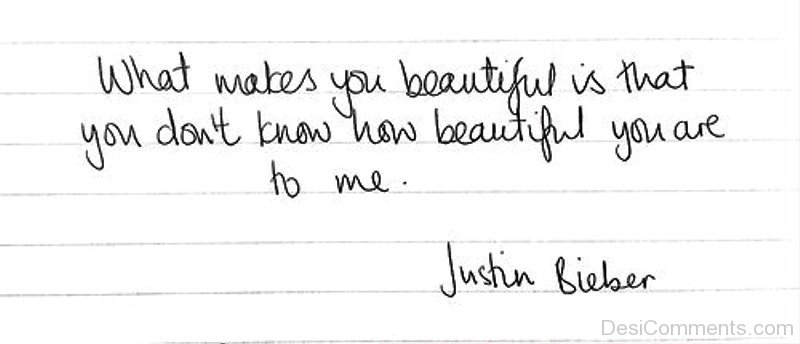 What makes you beautiful is that
you don't know how beautiful you are
to me.
Justin Bieber
DesiComments.com